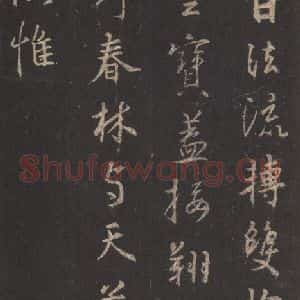 日法流轉雙
寶蓋接翔
春林与天
惟
Shufawang.CN